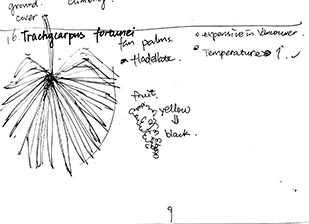 ground.
cover
climbing
16. Trachycarpus fortunei
fan palms.
expensive in Vancouver
Temperature ↑. ✓
fruit.
yellow
⇓
black.
9